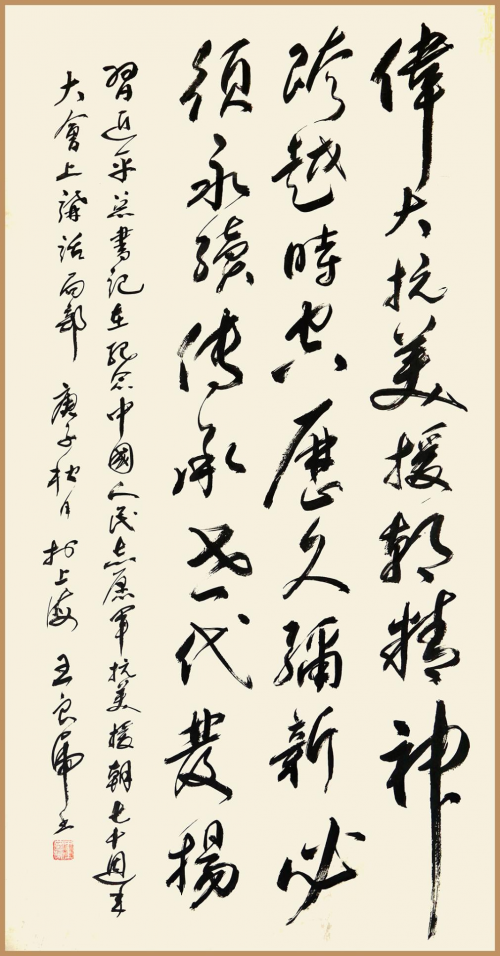 偉大抗美援朝精神
跨越時空歷久彌新必
須永續傳承世代發揚
習近平总書記在紀念中國人民志愿軍抗美援朝七十週年
大會上講話 庚子秋月於上海 王良虎书